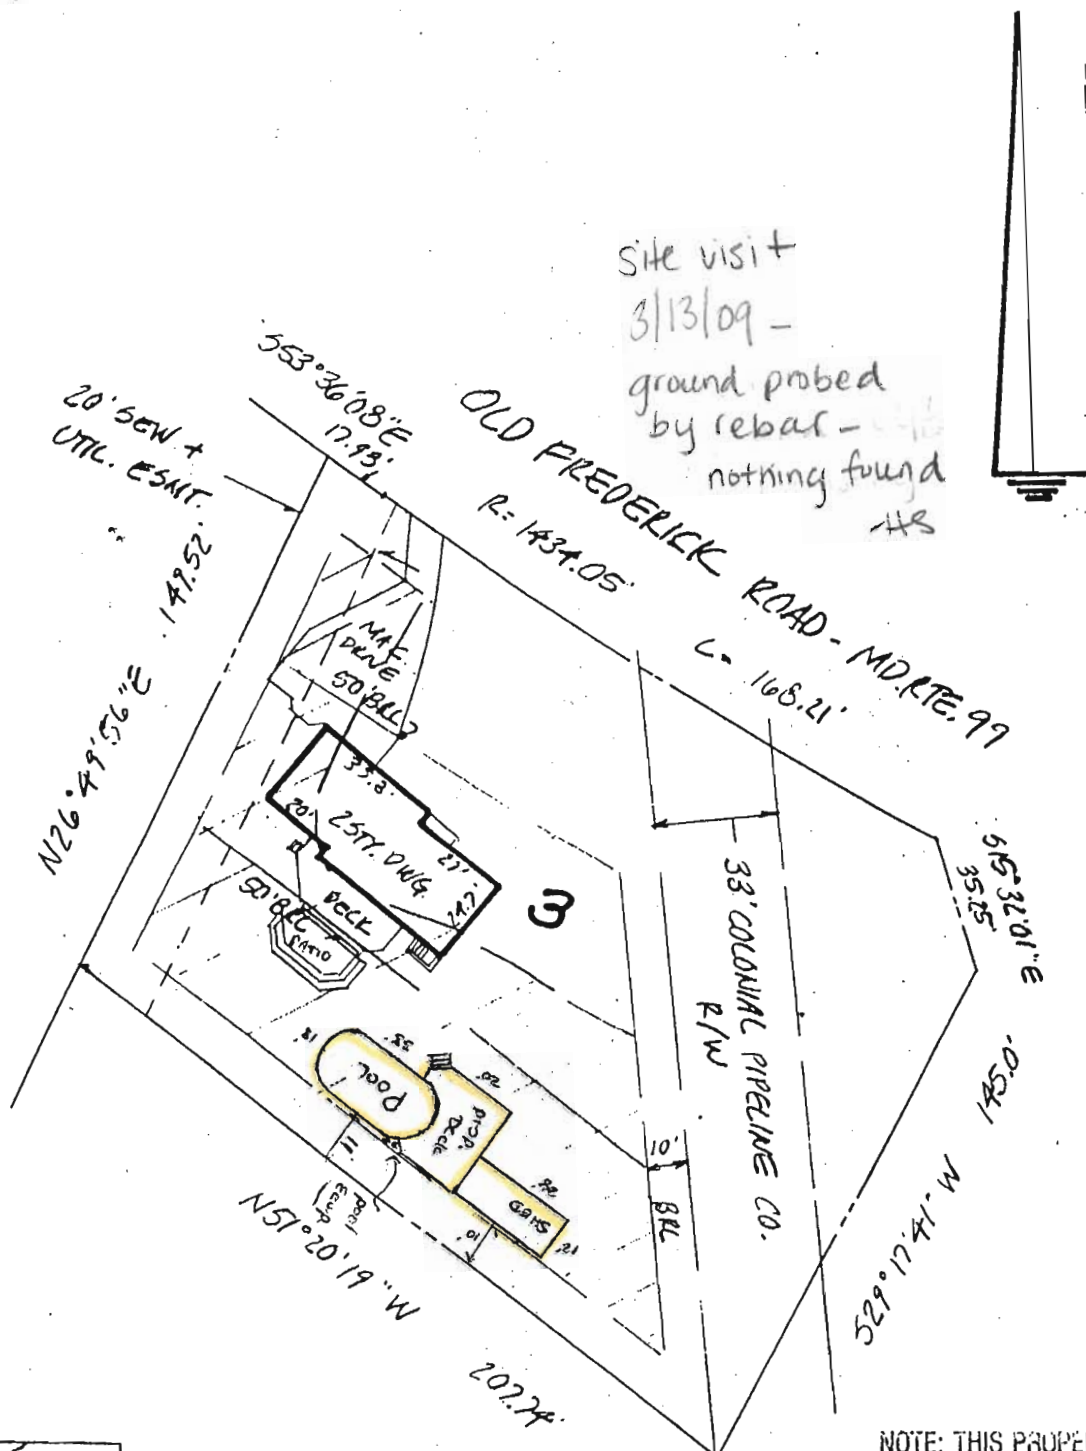 Site visit
3/13/09 -
ground probed
by rebar -
nothing found
-HS
S53°36'08"E
17.93'
20' SEW +
UTIL. ESMT.
OLD FREDERICK ROAD - MD.RTE. 99
R= 1434.05'
L= 168.21'
N26°49'56"E 149.52'
MAC.
DRIVE
50' BRL
33.2'
20'
2 STY. DWG.
27'
24.7'
3
DECK
50' BRL
PATIO
33' COLONIAL PIPELINE CO.
R/W
S15°32'01"E
35.25'
145.0'
S29°17'41"W
18'
33'
POOL
20'
prop.
Deck
11'
pool
Equip
SHED
12'
10'
10'
BRL
N51°20'19"W
207.74'
NOTE: THIS PROPE